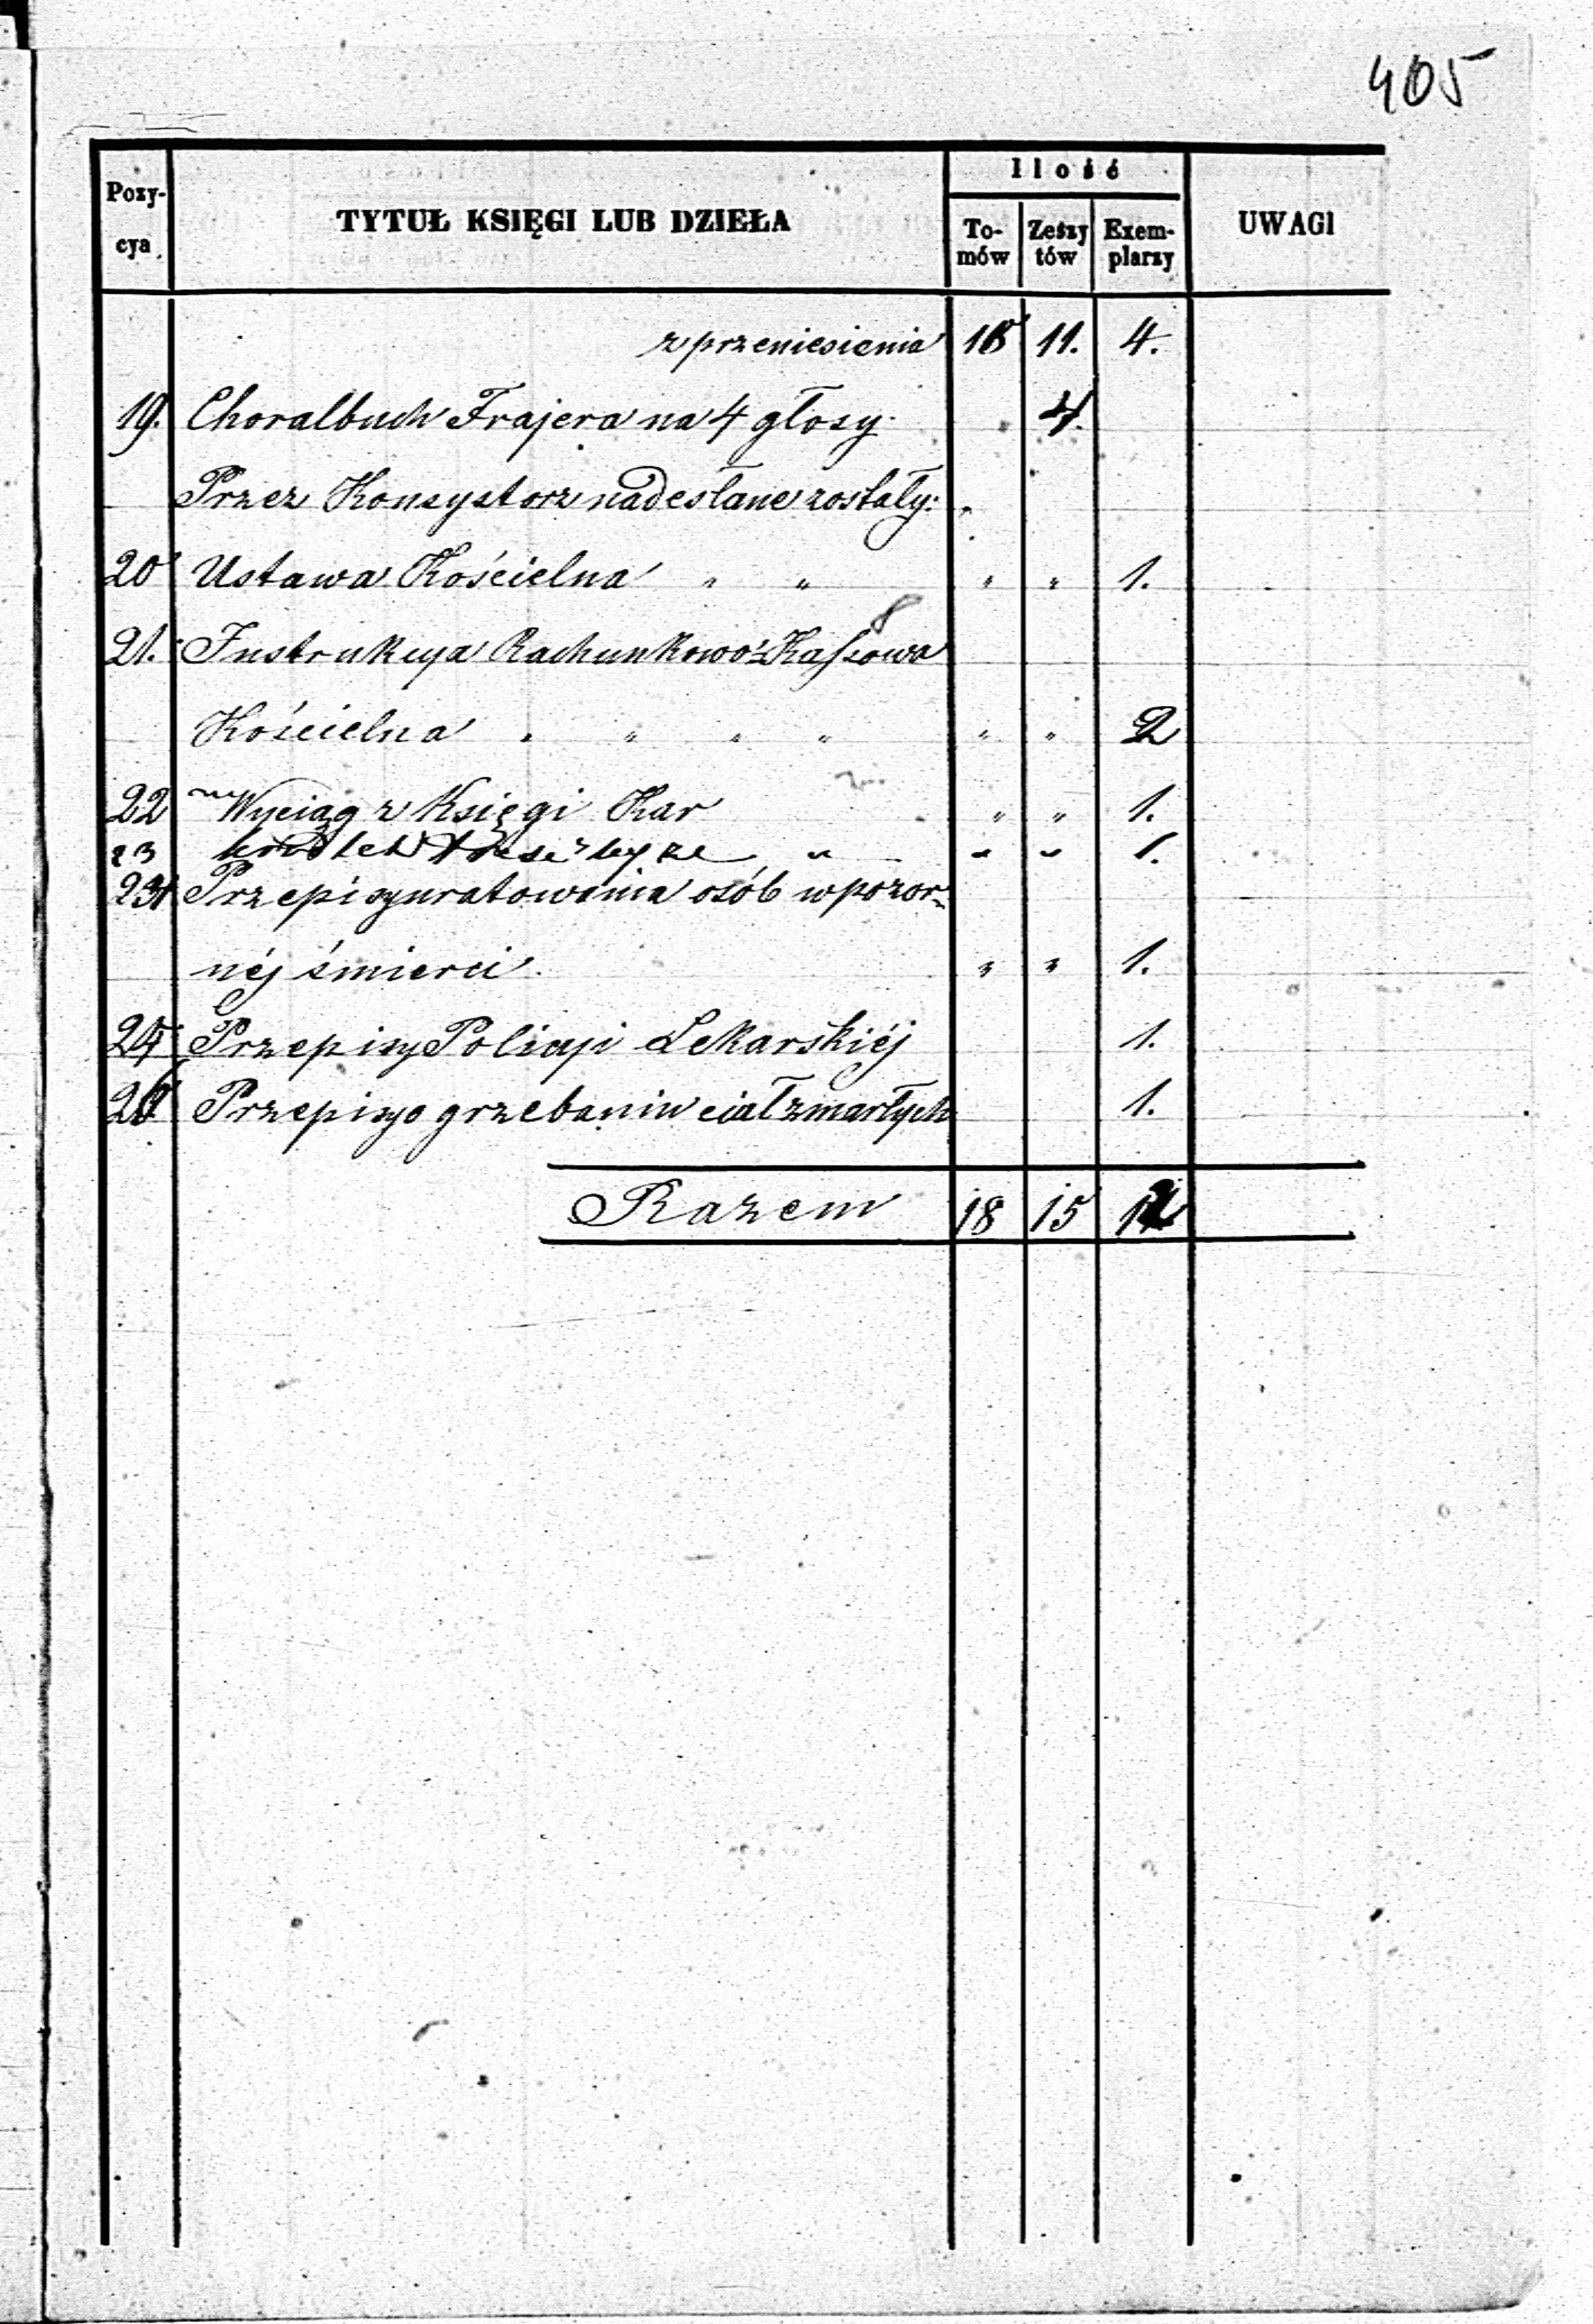 405
Pozy-
cya
TYTUŁ KSIĘGI LUB DZIEŁA
Ilość
To-
mów
Zeszy
tów
Exem-
plarzy
UWAGI
z przeniesienia 18 11. 4.
19. Choralbuch Frajera na 4 głosy 4.
Przez Konsystorz nadesłane zostały:
20 Ustawa Kościelna " " " " 1.
21. Instrukcya Rachunkowo-Kassowa
Kościelna " " " " " " 2
22 Wyciąg z Księgi Kar " " 1.
23 " " " 1.
24 Przepisy uratowania osób w pozor-
néj śmierci. " " 1.
25 Przepisy Policyi Lekarskiéj 1.
26 Przepisy o grzebaniu ciał zmarłych 1.
Razem 18 15 12